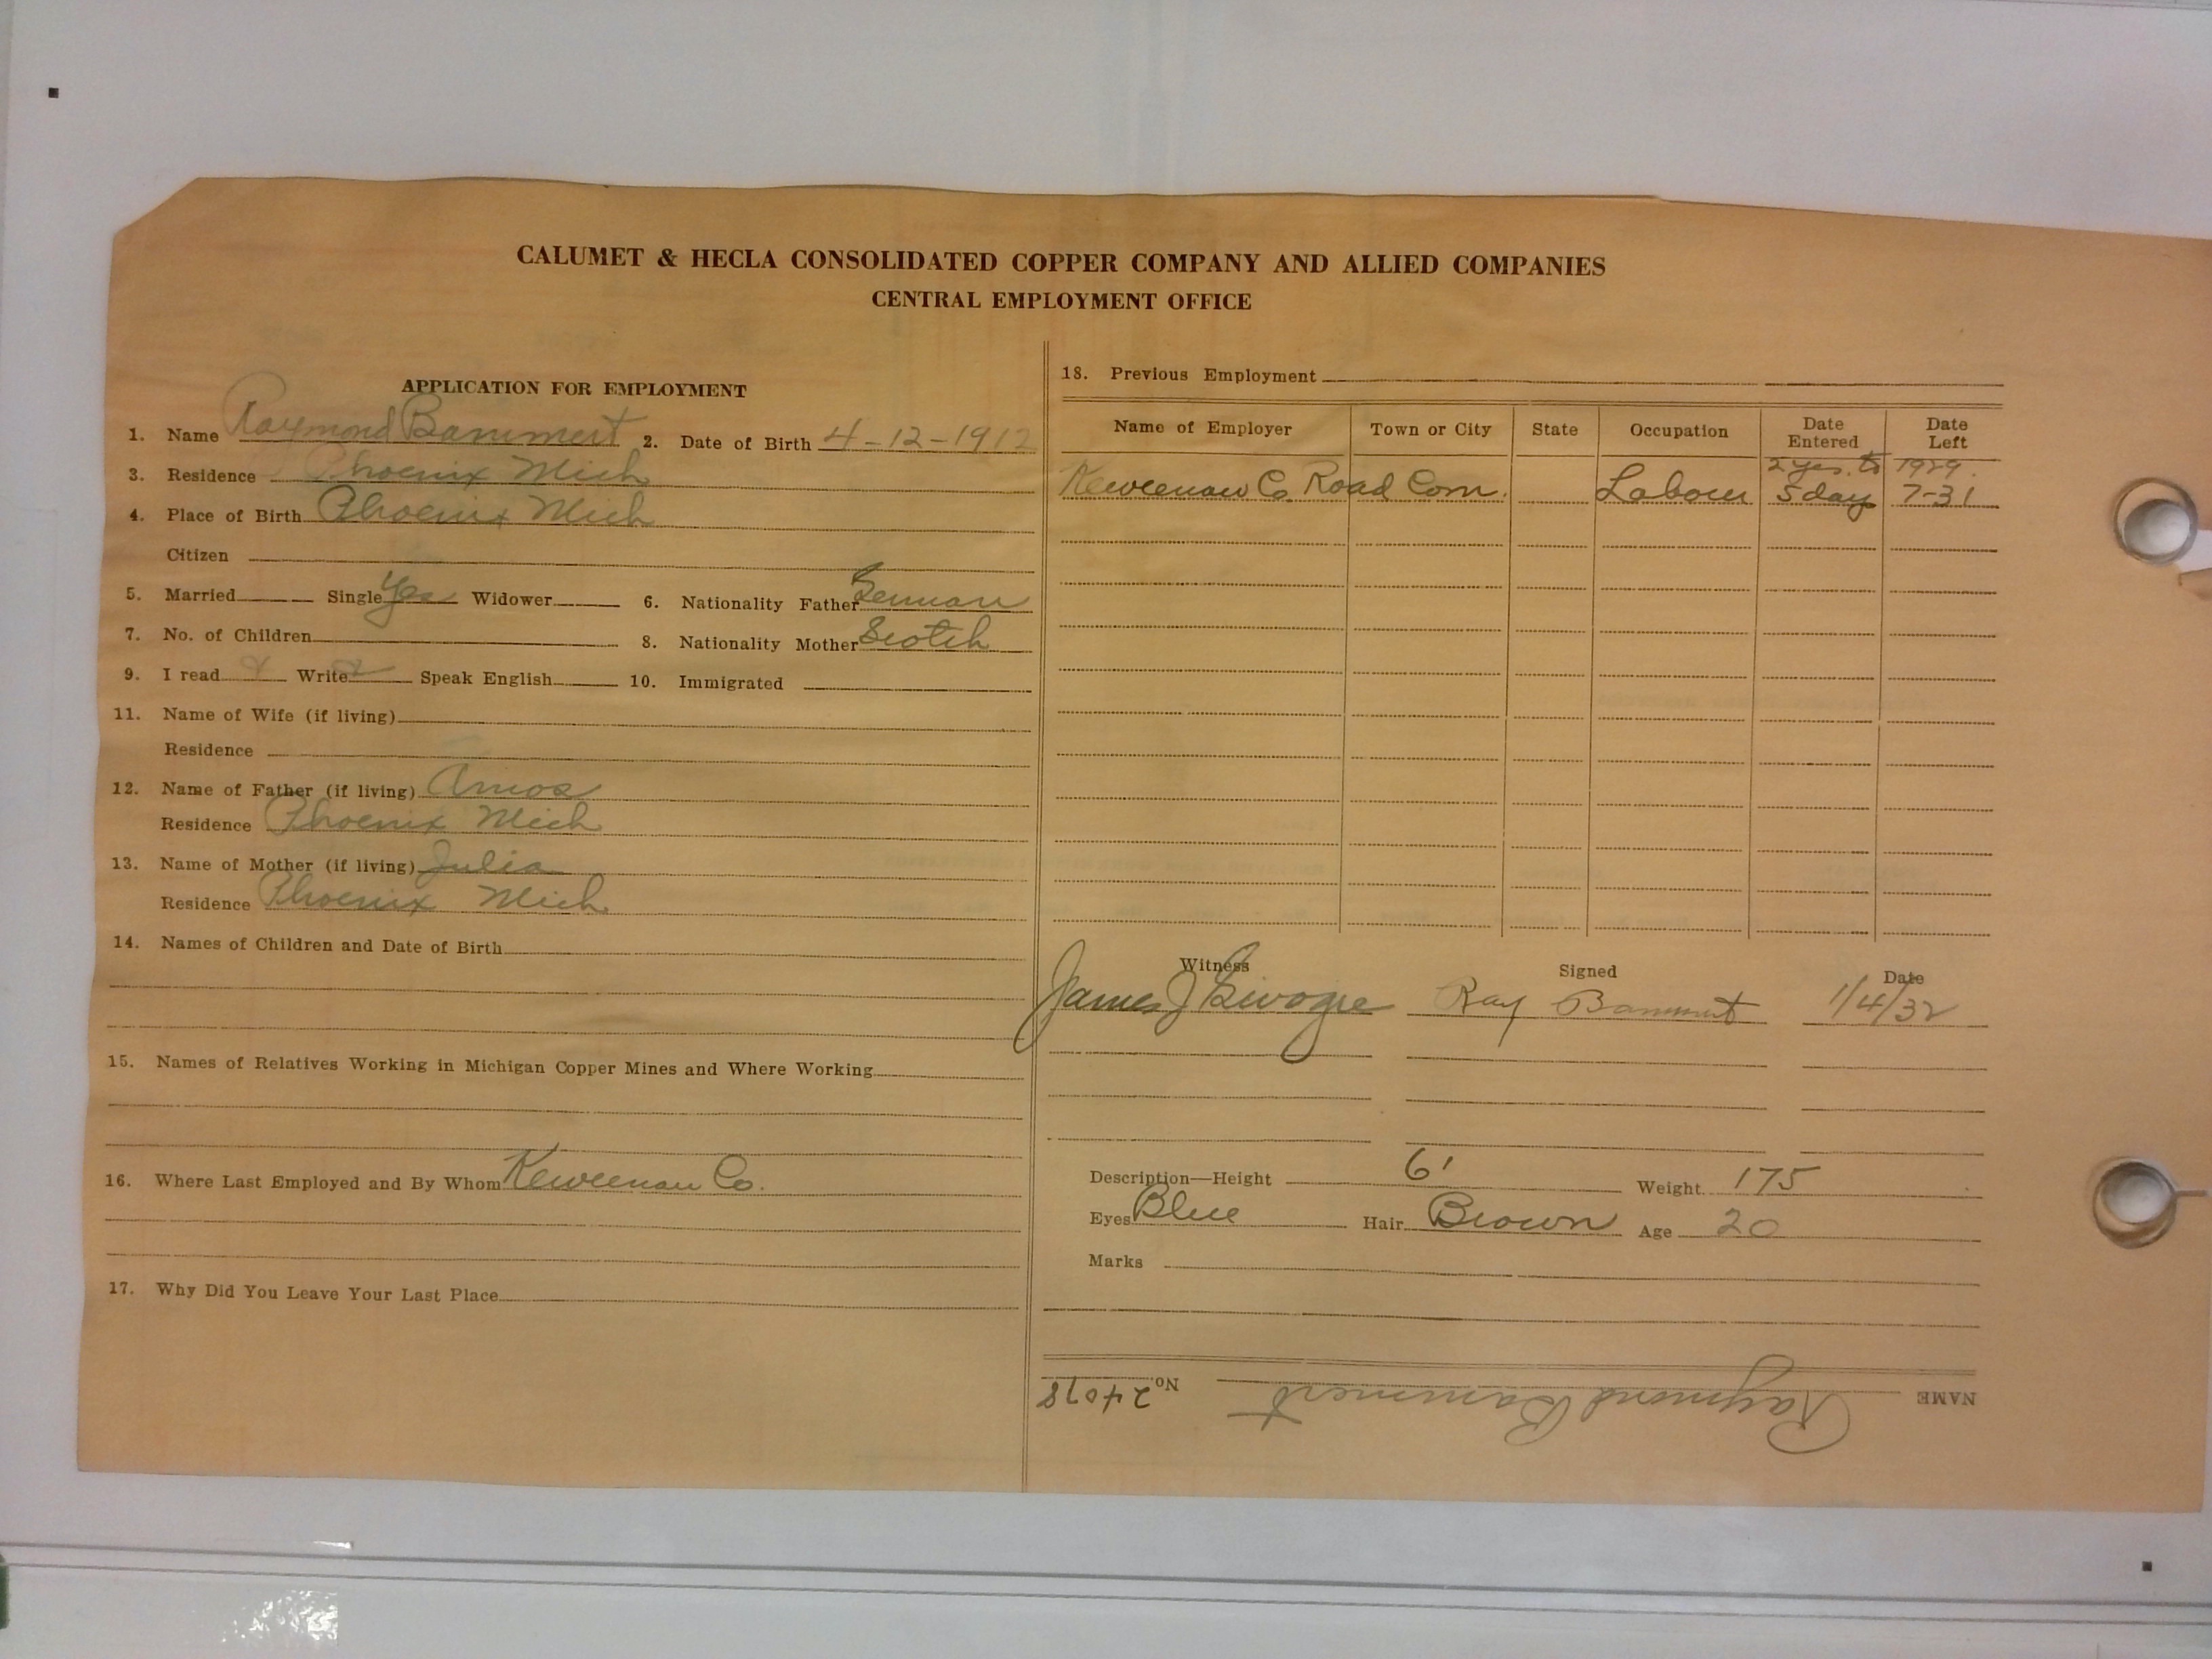 CALUMET & HECLA CONSOLIDATED COPPER COMPANY AND ALLIED COMPANIES
CENTRAL EMPLOYMENT OFFICE
APPLICATION FOR EMPLOYMENT
1. Name Raymond Bammert 2. Date of Birth 4-12-1912
3. Residence Phoenix Mich
4. Place of Birth Phoenix Mich
Citizen
5. Married Single Yes Widower 6. Nationality Father German
7. No. of Children 8. Nationality Mother Scotch
9. I read x Write x Speak English 10. Immigrated
11. Name of Wife (if living)
Residence
12. Name of Father (if living) Amos
Residence Phoenix Mich
13. Name of Mother (if living) Julia
Residence Phoenix Mich
14. Names of Children and Date of Birth
15. Names of Relatives Working in Michigan Copper Mines and Where Working
16. Where Last Employed and By Whom Keweenaw Co.
17. Why Did You Leave Your Last Place
18. Previous Employment
Name of Employer Town or City State Occupation Date Entered Date Left
2 yrs. to 1929.
Keweenaw Co. Road Com. Labour 5 day 7-31
Witness Signed Date
James J Ray Bammert 1/4/32
Description—Height 6' Weight 175
Eyes Blue Hair Brown Age 20
Marks
NAME Raymond Bammert No. 24078